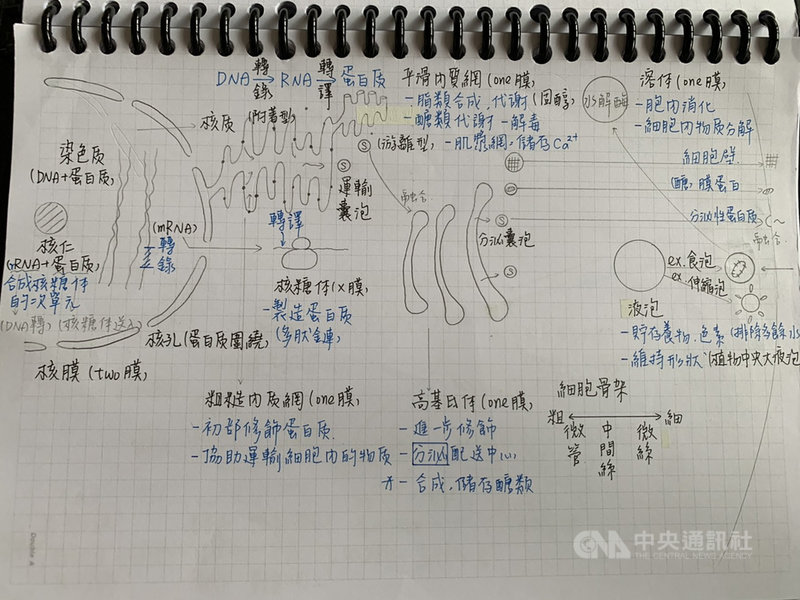 DNA 轉錄 RNA 轉譯 蛋白质
核质
(附著型)
染色质
(DNA+蛋白质)
核仁
(rRNA+蛋白质)
合成核糖体
的次單元
(DNA轉) (核糖体送入)
核膜 (two膜)
(mRNA)
轉錄
核孔 (蛋白质圍繞)
轉譯
核糖体 (x膜)
-製造蛋白质
(多肽鏈)
S
運輸
囊泡
平滑内質網 (one膜)
-脂類合成、代謝 (固醇)
-醣類代謝 -解毒
(游離型) -肌漿網:儲存Ca²⁺
融合
S
S
分泌囊泡
水解酶
溶体 (one膜)
-胞内消化
-細胞内物质分解
細胞壁
(醣)膜蛋白
分泌性蛋白质
融合
ex.食泡
ex.伸縮泡
液泡
-貯存養物、色素 (排除多餘水
-維持形狀 (植物中央大液泡
粗糙内质網 (one膜)
-初部修飾蛋白质
-協助運輸細胞内的物质
高基氏体 (one膜)
-進一步修飾
-分泌配送中心
-合成、儲存醣類
細胞骨架
粗 細
微管 中間絲 微絲
Double A
CNA 中央通訊社
THE CENTRAL NEWS AGENCY